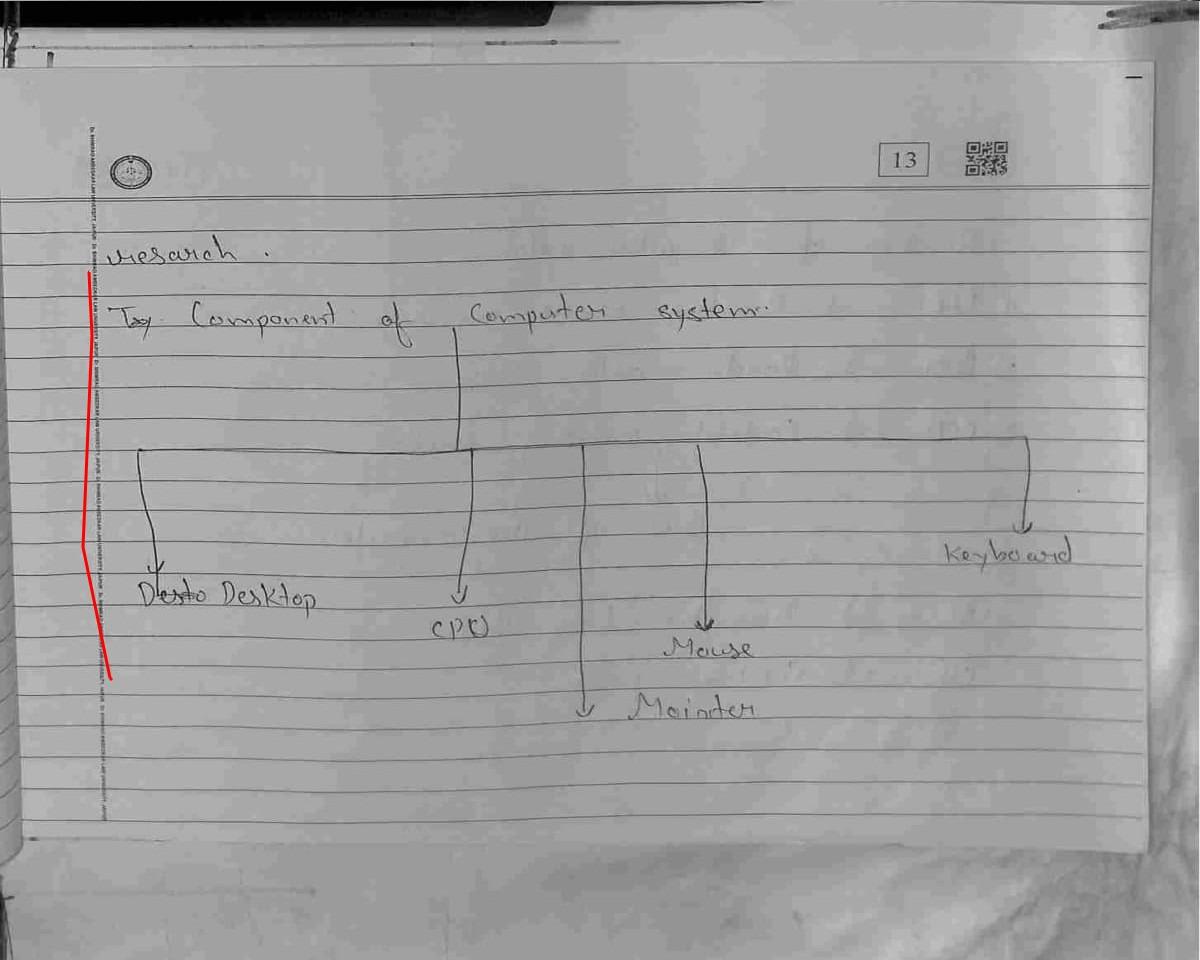 13
resarch .
Component of Computer system.
Keyboard
Desto Desktop
CPU
Mouse
Mointer